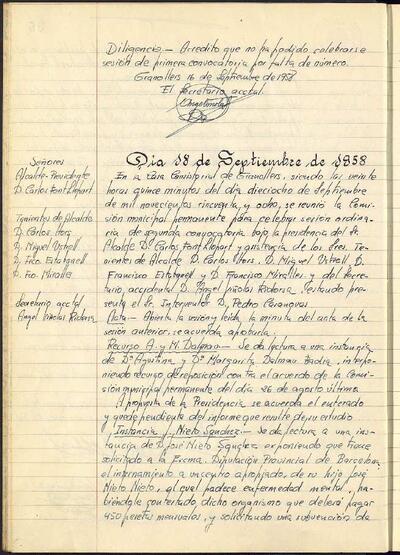 Diligencia.- Acredito que no ha podido celebrarse
sesión de primera convocatoria por falta de número.
Granollers 16 de Septiembre de 1958
El Secretario acctal.
Señores
Alcalde-Presidente
D. Carlos Font Llopart
Tenientes de Alcalde
D. Carlos Flors
D. Miquel Ustrell
D. Fco. Estabanell
D. Fco. Miralles
Secretario acctal
Angel Piñolas Riadoria
Dia 18 de Septiembre de 1958
En la Casa Consistorial de Granollers, siendo las veinte
horas quince minutos del día dieciocho de Septiembre
de mil novecientos cincuenta y ocho, se reunió la Comi-
sión municipal permanente para celebrar sesión ordina-
ria de segunda convocatoria bajo la presidencia del Sr.
Alcalde D. Carlos Font Llopart y asistencia de los Sres. Te-
nientes de Alcalde D. Carlos Flors, D. Miguel Ustrell, D.
Francisco Estabanell y D. Francisco Miralles y del Secre-
tario, accidental D. Angel Piñolas Riadoria, estando pre-
sente el Sr. Interventor D. Pedro Caranguas.
Acta - Abierta la sesión y leída la minuta del acta de la
sesión anterior, se acuerda aprobarla.
Recurso A. y M. Dalmau - Se da lectura a una instancia
de Dª Agustina y Dª Margarita Dalmau Badia, interpo-
niendo recurso de reposición contra el acuerdo de la Comi-
sión municipal permanente del día 26 de agosto último.
A propuesta de la Presidencia se acuerda el enterado
y quede pendiente del informe que resulte de su estudio
Instancia J. Nieto Sanchez - Se da lectura a una ins-
tancia de D. José Nieto Sanchez exponiendo que tiene
solicitado a la Excma. Diputación Provincial de Barcelona
el internamiento a un centro apropiado, de su hijo José
Nieto Nieto, el cual padece enfermedad mental, ha-
biéndole contestado, dicho organismo que deberá pagar
450 pesetas mensuales, y solicitando una subvención de